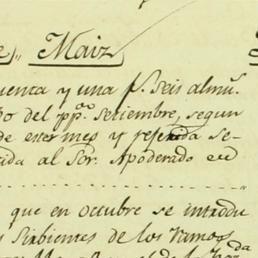 Maiz
enta y una f.s seis almu.s
del pp.do Setiembre, segun
de este mes y referida se-
ida al Sor. Apoderado
que en octubre se introdu
Sirbientes de los Ramos